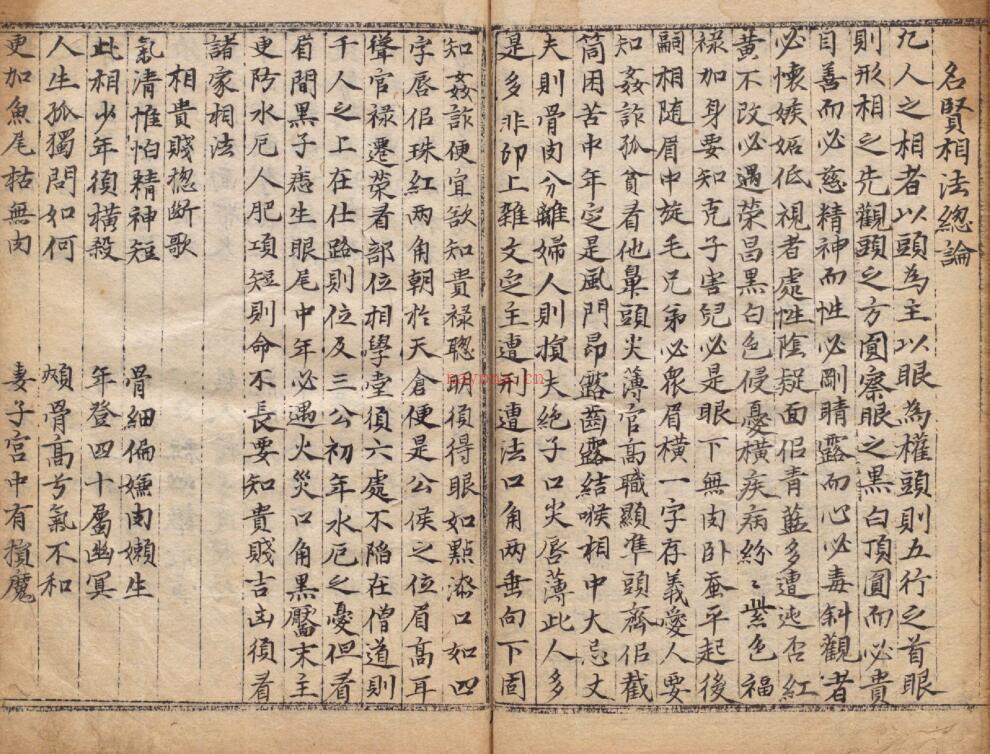 名賢相法總論
凢人之相者以頭為主以眼為權頭則五行之首眼
則形相之先觀頭之方圎察眼之黑白頂圎而必貴
目善而必慈精神而性必剛睛露而心必毒斜觀者
必懷嫉妬低視者處性陰疑面佀青藍多遭迍否紅
黃不改必遇荣昌黒白色侵憂橫疾病紛〻紫色福
祿加身要知克子害兒必是眼下無肉卧蚕平起後
嗣相随眉中旋毛兄弟必衆眉橫一字存義愛人要
知姦詐孤貧看他鼻頭尖薄官高職顯準頭齊佀截
筒困苦中年定是風門昂露齒露結喉相中大忌丈
夫則骨肉分離婦人則損夫絕子口尖唇薄此人多
是多非卯上雜文定主遭刑遭法口角兩垂向下固
知姦詐便宜欲知貴祿聦明須得眼如點漆口如四
字唇佀珠紅两角朝於天倉便是公侯之位眉高耳
聳官禄遷荣看部位相學堂須六處不陷在僧道則
千人之上在仕路則位及三公初年水厄之憂但看
眉間黒子痣生眼尾中年必遇火災口角黒靨末主
更防水厄人肥項短則命不長要知貴賤吉凶須看
諸家相法
相貴賤揔断歌
氣清惟怕精神短 骨細偏嫌肉嬾生
此相少年須橫殺 年登四十屬幽冥
人生孤獨問如何 頰骨高兮氣不和
更加魚尾枯無肉 妻子宮中有損魔
nayona.cn